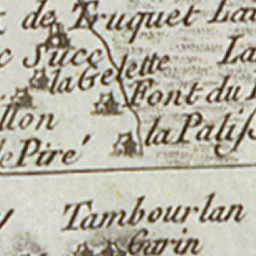 de Truquet La
Succ
la Gelette
La
Font du
llon
la Paliſ
Piré
Tambourlan
Garin